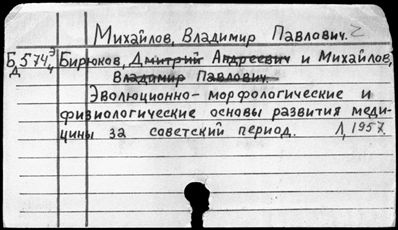 Михайлов, Владимир Павлович. 2
Б 574 Э Бирюков, Дмитрий Андреевич и Михайлов,
Д ч Владимир Павлович.
Эволюционно-морфологические и
физиологические основы развития меди-
цины за советский период. Л, 1957.